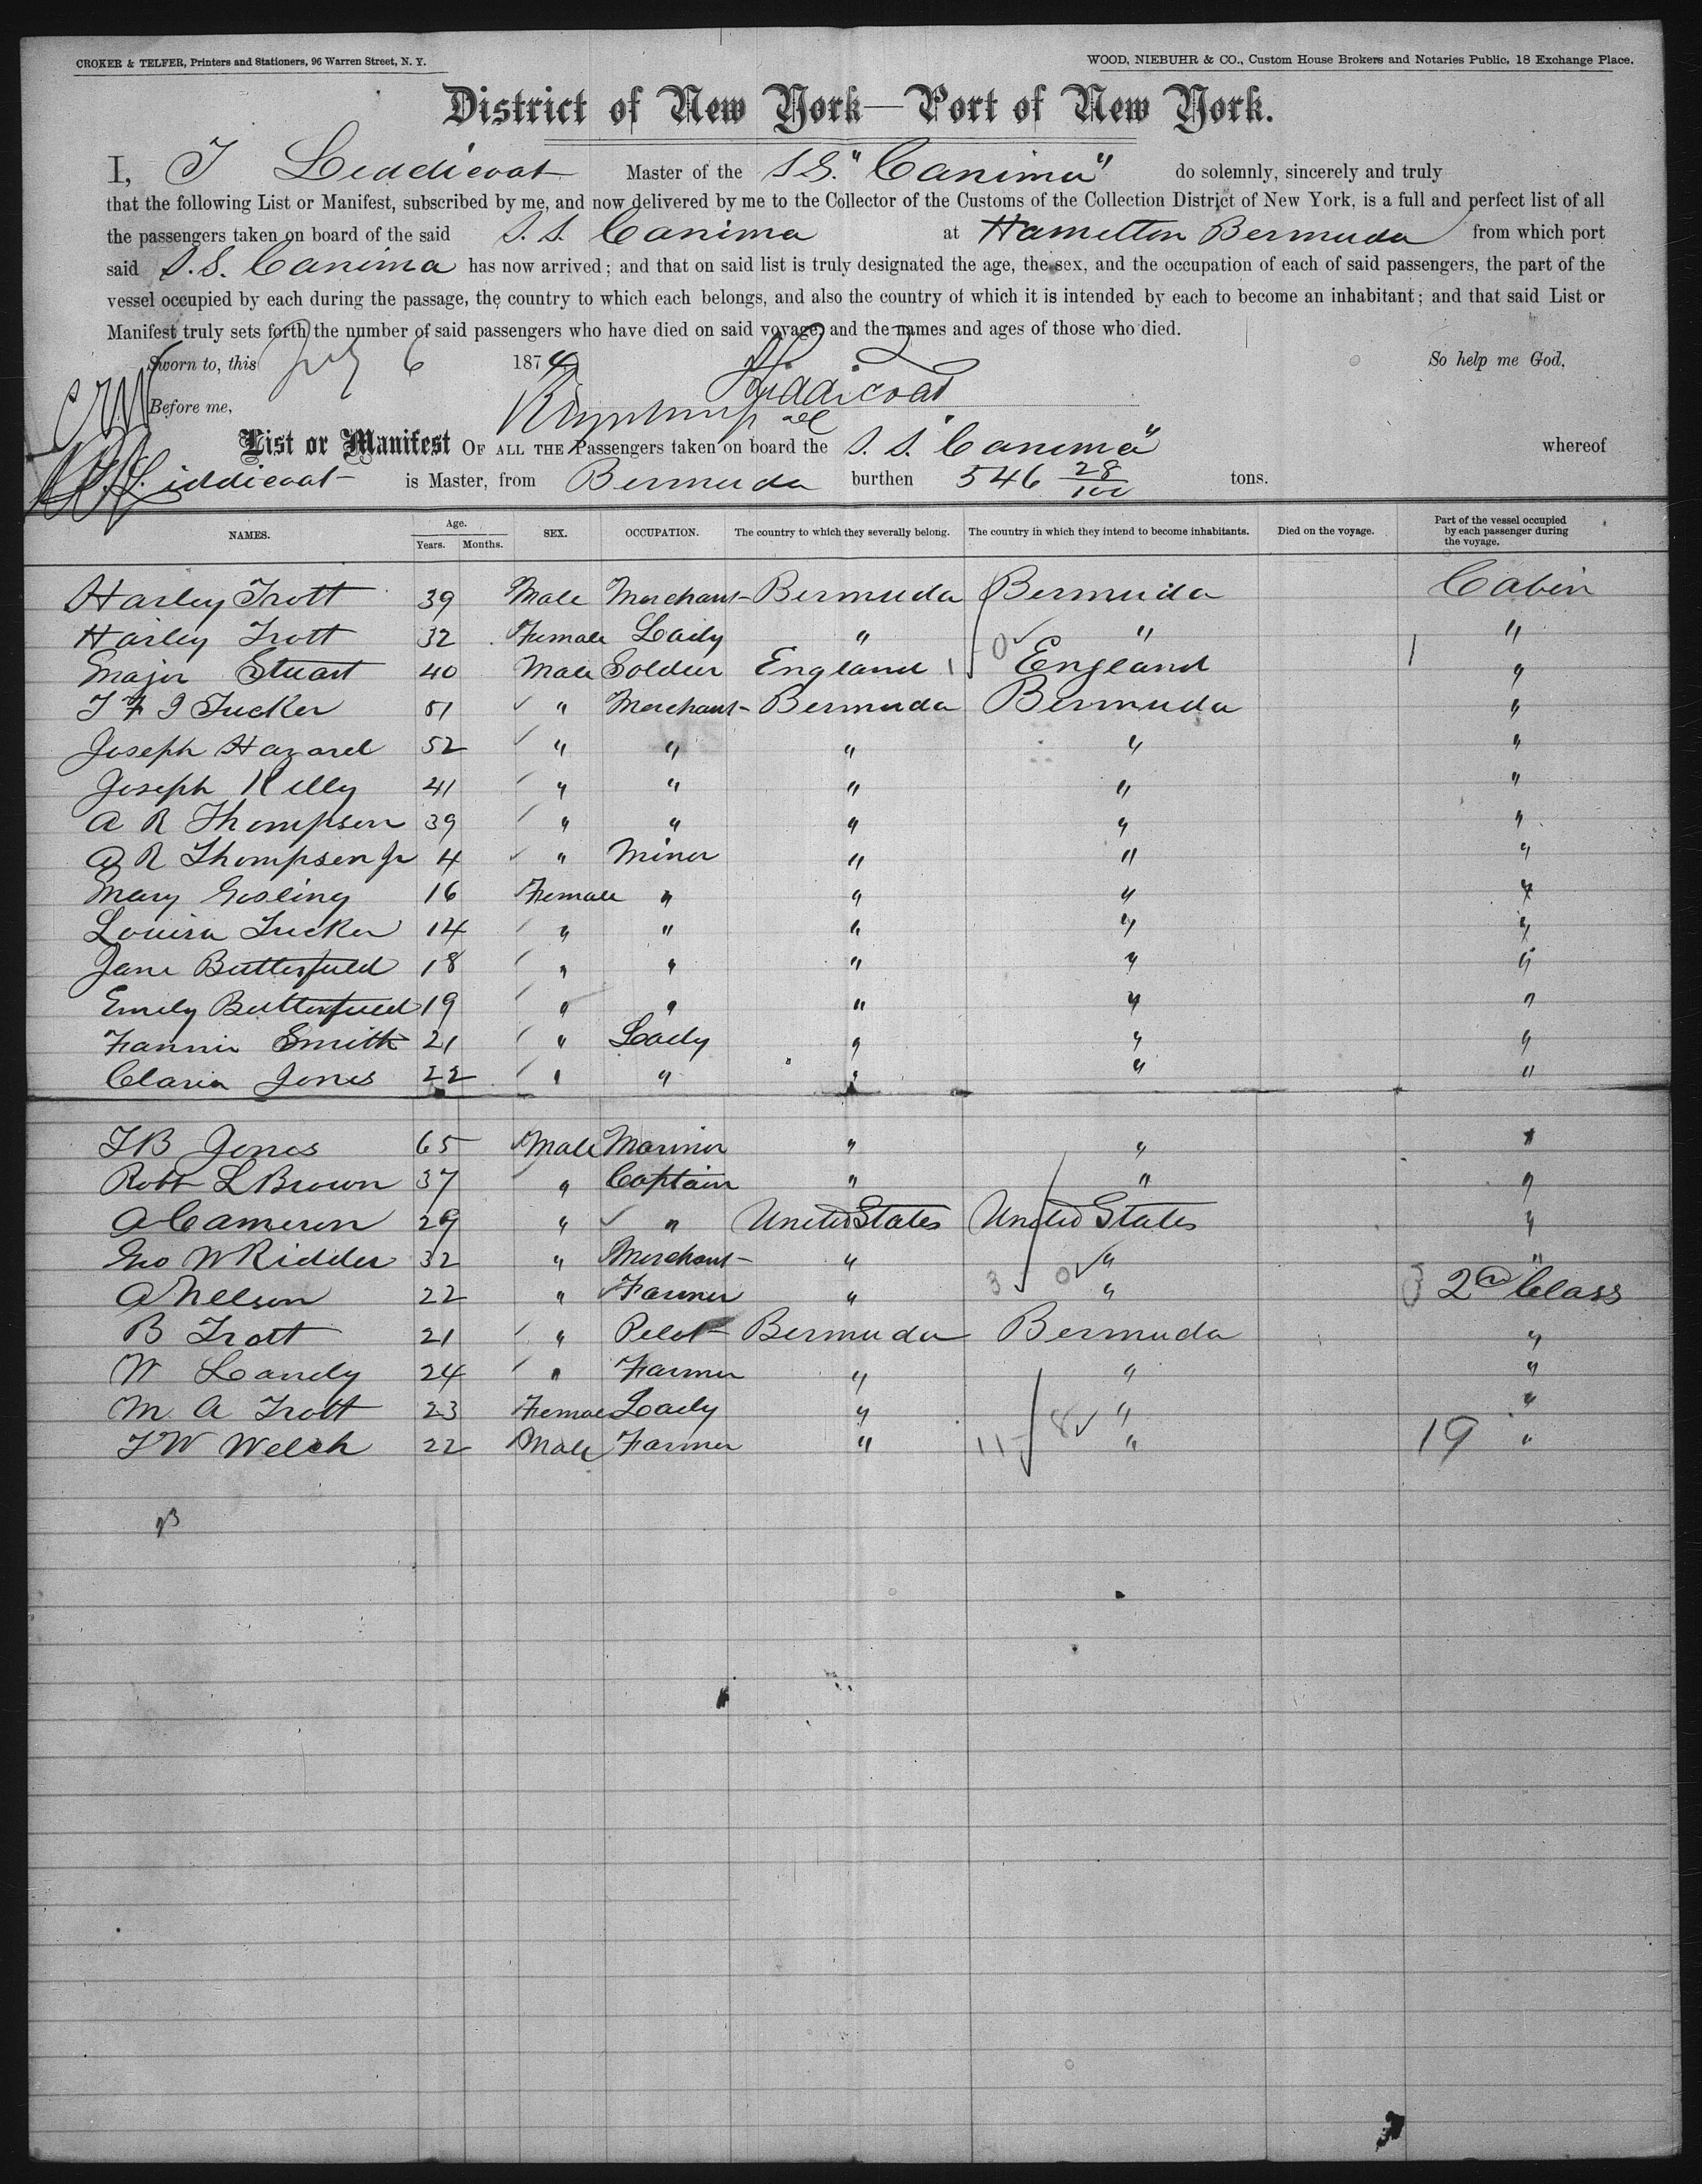 CROKER & TELFER, Printers and Stationers, 96 Warren Street, N. Y.
WOOD, NIEBUHR & CO., Custom House Brokers and Notaries Public, 18 Exchange Place.
District of New York—Port of New York.
I, J Liddicoat Master of the S S. "Canima" do solemnly, sincerely and truly
that the following List or Manifest, subscribed by me, and now delivered by me to the Collector of the Customs of the Collection District of New York, is a full and perfect list of all
the passengers taken on board of the said S. S. Canima at Hamelton Bermuda from which port
said S. S. Canima has now arrived; and that on said list is truly designated the age, the sex, and the occupation of each of said passengers, the part of the
vessel occupied by each during the passage, the country to which each belongs, and also the country of which it is intended by each to become an inhabitant; and that said List or
Manifest truly sets forth the number of said passengers who have died on said voyage, and the names and ages of those who died.
Sworn to, this July 6 1874 So help me God,
Liddicoat
Before me,
List or Manifest OF ALL THE Passengers taken on board the S. S. "Canima" whereof
Liddicoat is Master, from Bermuda burthen 546 28/100 tons.
NAMES. Age. Years. Months. SEX. OCCUPATION. The country to which they severally belong. The country in which they intend to become inhabitants. Died on the voyage. Part of the vessel occupied by each passenger during the voyage.
Harley Trott 39 Male Merchant Bermuda Bermuda Cabin
Harley Trott 32 Female Lady " 0 " "
Major Stuart 40 Male Soldier England 1 England 1 "
T F J Tucker 51 " Merchant Bermuda Bermuda "
Joseph Hazard 52 " " " " "
Joseph Kelly 41 " " " " "
A R Thompson 39 " " " " "
A R Thompson Jr 4 " Minor " " "
Mary Gosling 16 Female " " " "
Louisa Tucker 14 " " " " "
Jane Butterfield 18 " " " " "
Emily Butterfield 19 " " " " "
Fannie Smith 21 " Lady " " "
Claria Jones 22 " " " " "
T B Jones 65 Male Mariner " " "
Robt L Brown 37 " Captain " " "
A Cameron 29 " " United States United States "
Geo W Kidder 32 " Merchant " 0 " "
A Nelson 22 " Farmer " 3 " 2nd Class
B Trott 21 " Pilot Bermuda Bermuda "
W Landy 24 " Farmer " " "
M A Trott 23 Female Lady " 8 " "
T W Welch 22 Male Farmer " 11 " 19 "
23